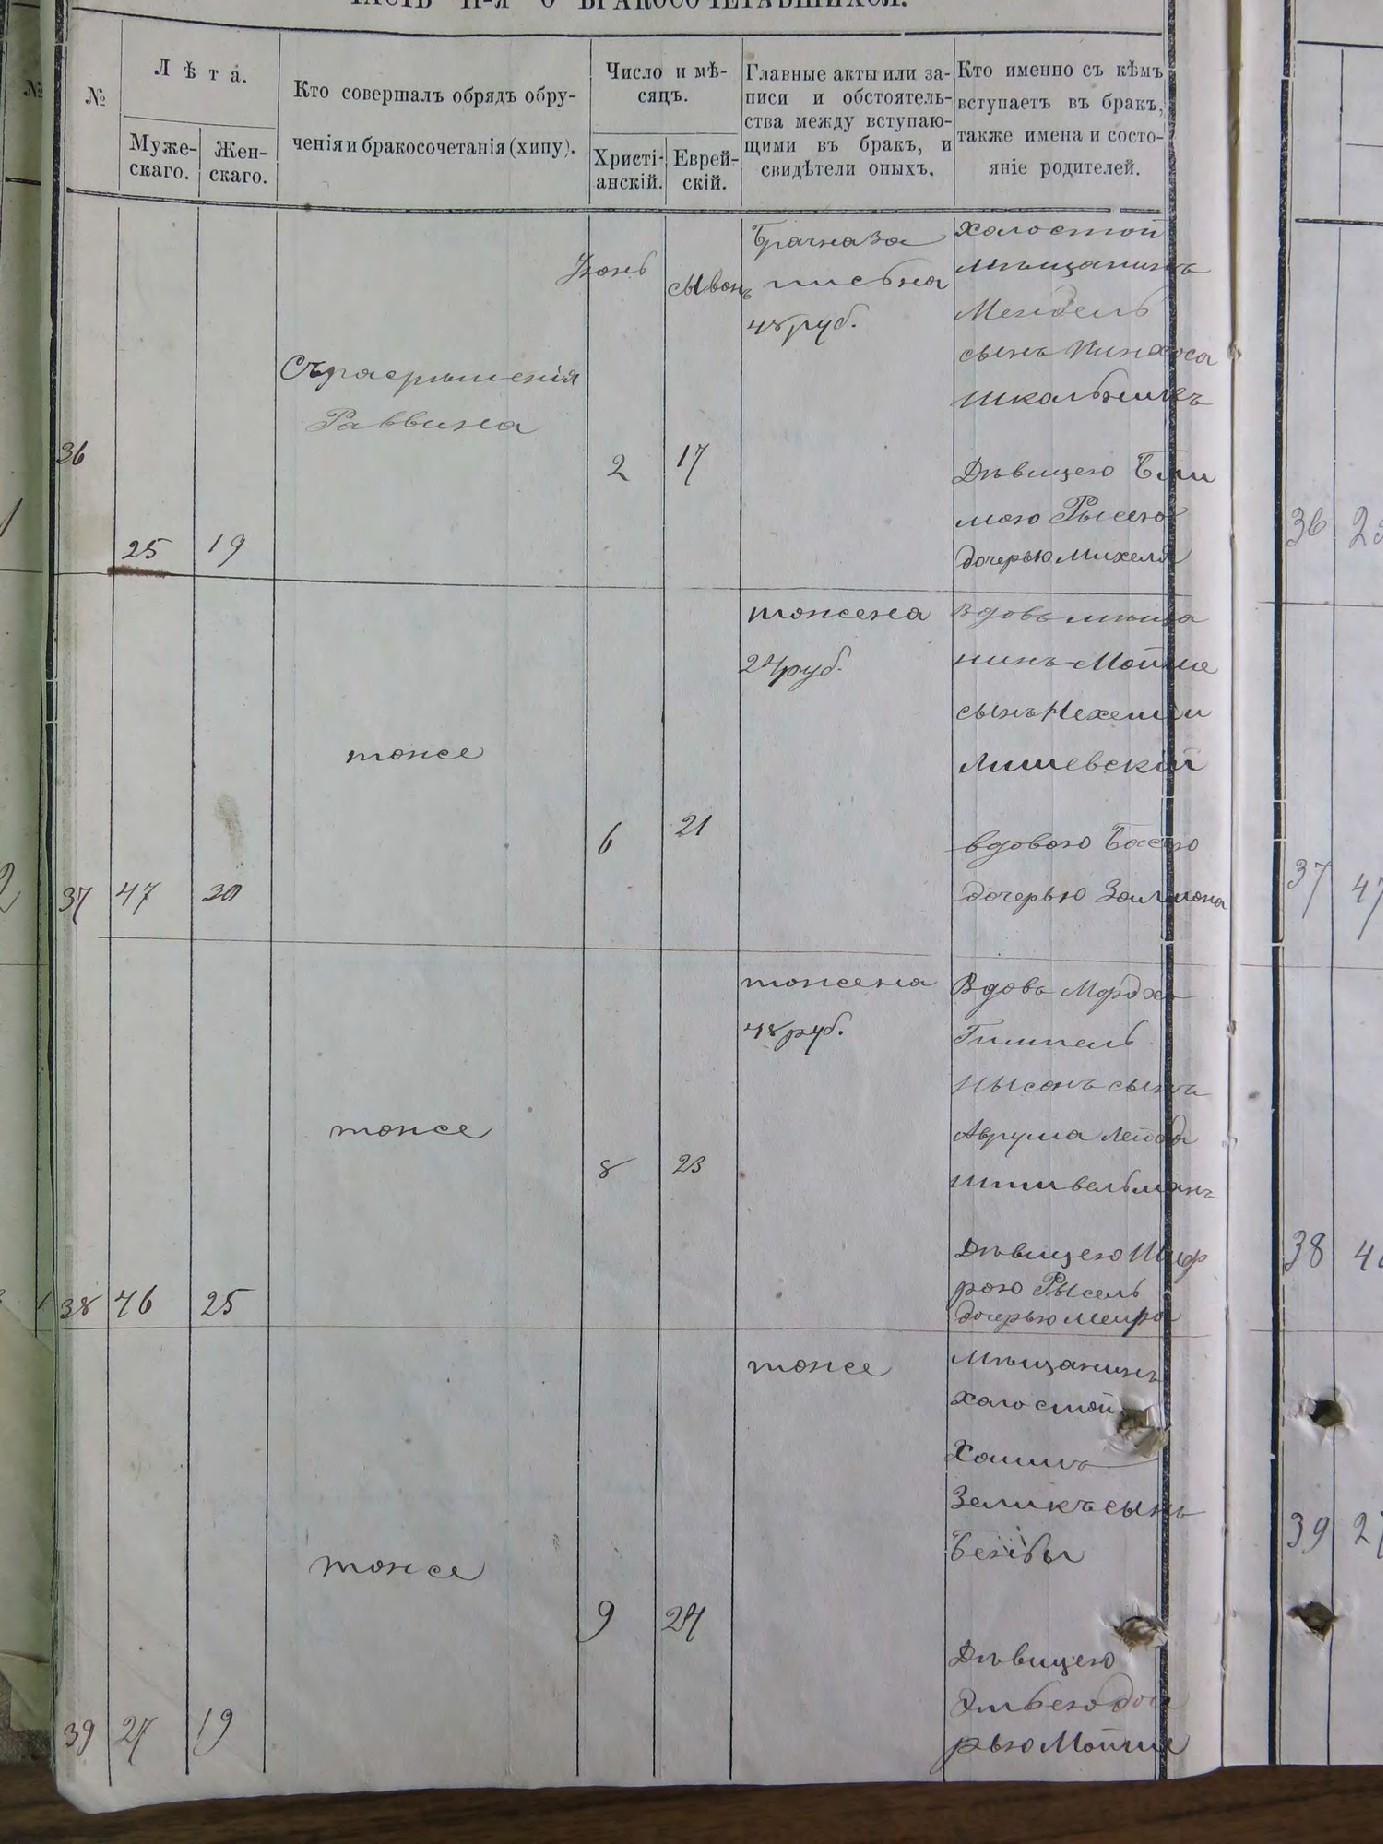 ЧАСТЬ II-я О БРАКОСОЧЕТАВШИХСЯ.
№
Лѣта.
Муже-
скаго.
Жен-
скаго.
Кто совершалъ обрядъ обру-
ченія и бракосочетанія (хипу).
Число и мѣ-
сяцъ.
Христі-
анскій.
Еврей-
скій.
Главные акты или за-
писи и обстоятель-
ства между вступаю-
щими въ бракъ, и
свидѣтели оныхъ.
Кто именно съ кѣмъ
вступаетъ въ бракъ,
также имена и состо-
яніе родителей.
36
25
19
Съ разрѣшенія
Раввина
Іюнь
2
Сывонъ
17
Брачная за
пись на
48 руб.
Холостой
мѣщанинъ
Мендель
сынъ Пинхоса
Школьникъ
Дѣвицею
мою Рысею
дочерью Михеля
37
47
тоже
6
21
тоже на
24 руб.
Вдовъ мѣща
нинъ Мойше
сынъ Нехеміи
Лишевскій
вдовою Басею
дочерью Залмона
38
46
25
тоже
8
23
тоже на
48 руб.
Вдовъ Мордхо
Гимпель
Нысонъ сынъ
Аврума Лейба
Штивельманъ
Дѣвицею Шиф
рою Рысель
дочерью Меира
39
24
19
тоже
9
24
тоже
Мѣщанинъ
холостой
Хаимъ
Зеликъ сынъ
Дѣвицею
доче
рью Мойши
36
37
47
38
39